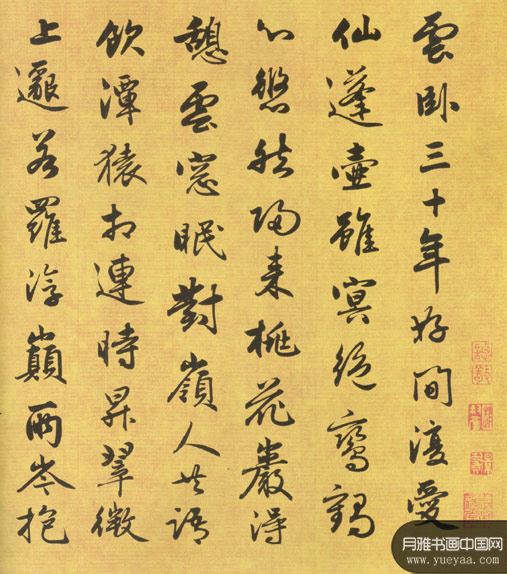 雲卧三十年好間復愛
仙蓬壺雖冥絕鸞鶴
心悠然歸來桃花巖得
憩雲窓眠對嶺人共語
飲潭猿相連時昇翠微
上邈若羅浮巔兩岑抱
月雅书画中国网
www.yueyaa.com